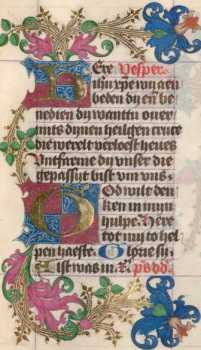 Here Vesper
ihu xpe wy aen
beden dy en be
nedien dy wanttu over
mits dynen heilgen cruce
die werelt verloest heues
Untfarme dy unser die
gepassyt bist vur uns
God wilt den
ken in myn
hulpe. Here
tot my to hel
pen haeste. Glorie si
Alst was in.